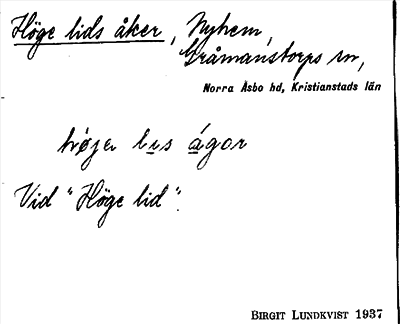 Höge lids åker, Nyhem,
Gråmanstorps sn,
Norra Åsbo hd, Kristianstads län
lis ágor
Vid "Höge lid".
BIRGIT LUNDKVIST 1937